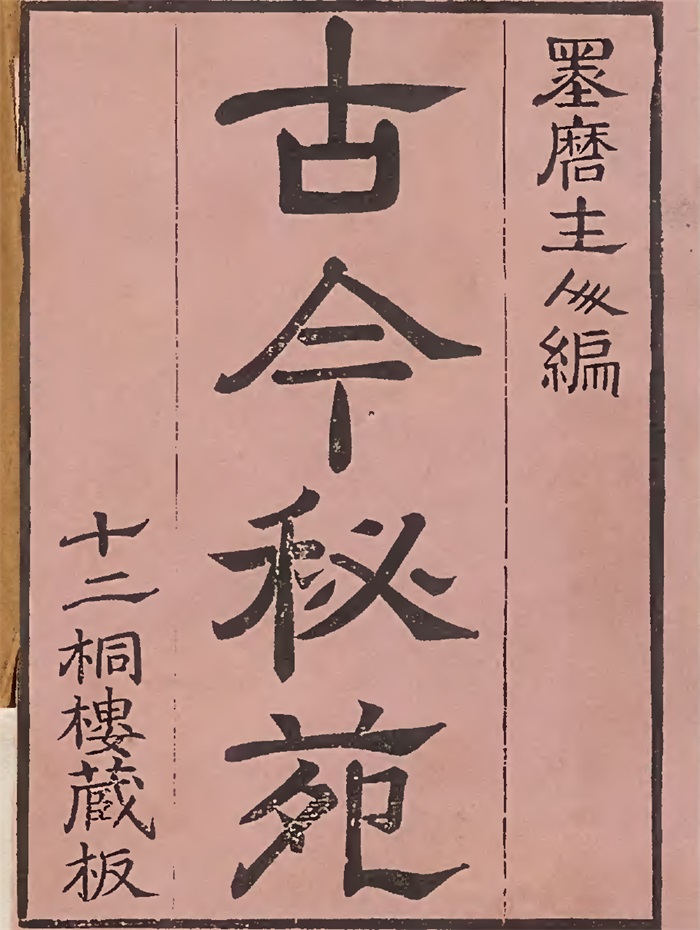 墨磨主人編
古今秘苑
十二桐樓蔵板